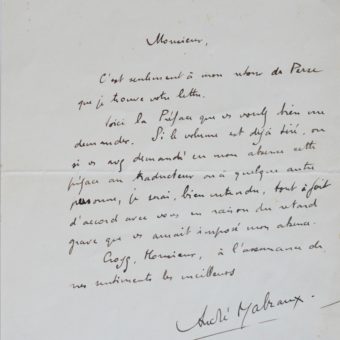 Monsieur,
C'est seulement à mon retour de Perse
que je trouve votre lettre.
Voici la Préface que vous voulez bien me
demander. Si le volume est déjà tiré, ou
si vous avez demandé en mon absence cette
préface au traducteur ou à quelque autre
personne, je serai, bien entendu, tout à fait
d'accord avec vous en raison du retard
grave que vous aurait imposé mon absence.
Croyez, Monsieur, à l'assurance de
mes sentiments les meilleurs
André Malraux.